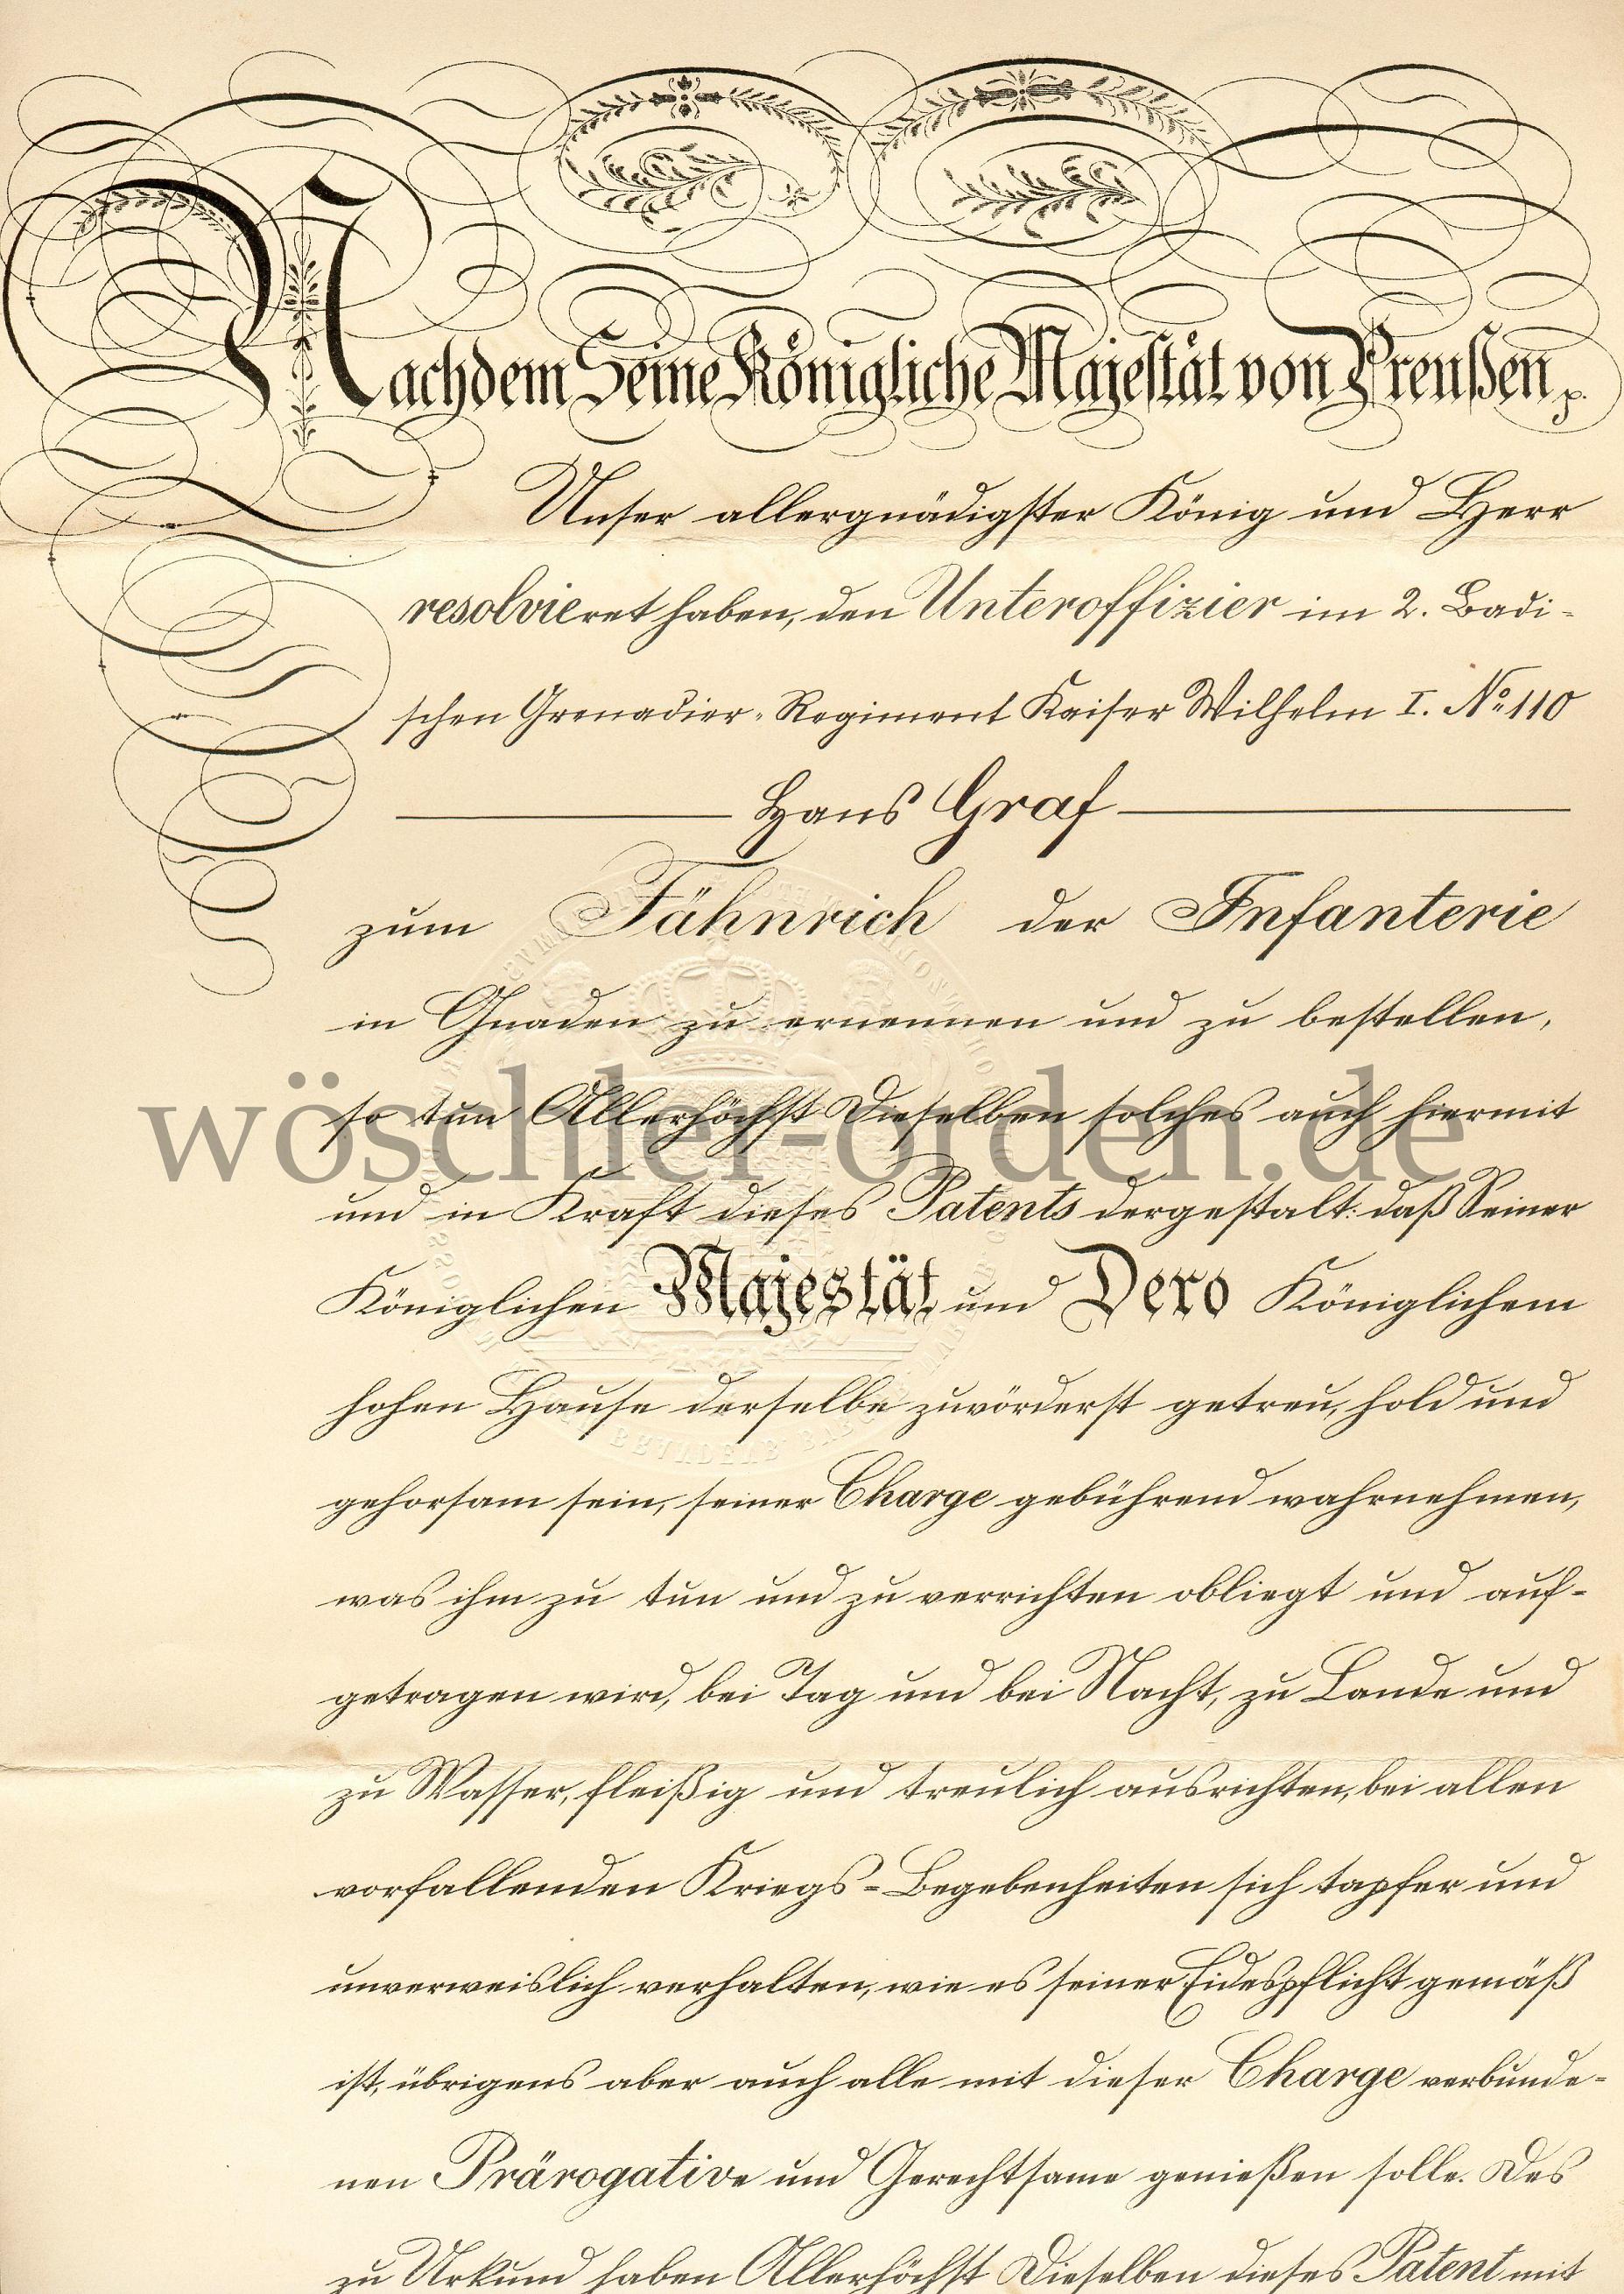 Nachdem Seine Königliche Majestät von Preußen p.
Unser allergnädigster König und Herr
resolvieret haben, den Unteroffizier im 2. Badi-
schen Grenadier-Regiment Kaiser Wilhelm I. No 110
Hans Graf
zum Fähnrich der Infanterie
in Gnaden zu ernennen und zu bestellen,
so tun Allerhöchst Dieselben solches auch hiermit
wöschler-orden.de
und in Kraft dieses Patents dergestalt: daß Seiner
Königlichen Majestät und Dero Königlichem
hohen Hause derselbe zuvörderst getreu, hold und
gehorsam sein, seiner Charge gebührend wahrnehmen,
was ihm zu tun und zu verrichten obliegt und auf-
getragen wird, bei Tag und bei Nacht, zu Lande und
zu Wasser, fleißig und treulich ausrichten, bei allen
vorfallenden Kriegs-Begebenheiten sich tapfer und
unverweislich verhalten, wie es seiner Eidespflicht gemäß
ist, übrigens aber auch alle mit dieser Charge verbunde-
nen Prärogative und Gerechtsame genießen solle. Des
zu Urkund haben Allerhöchst Dieselben dieses Patent mit